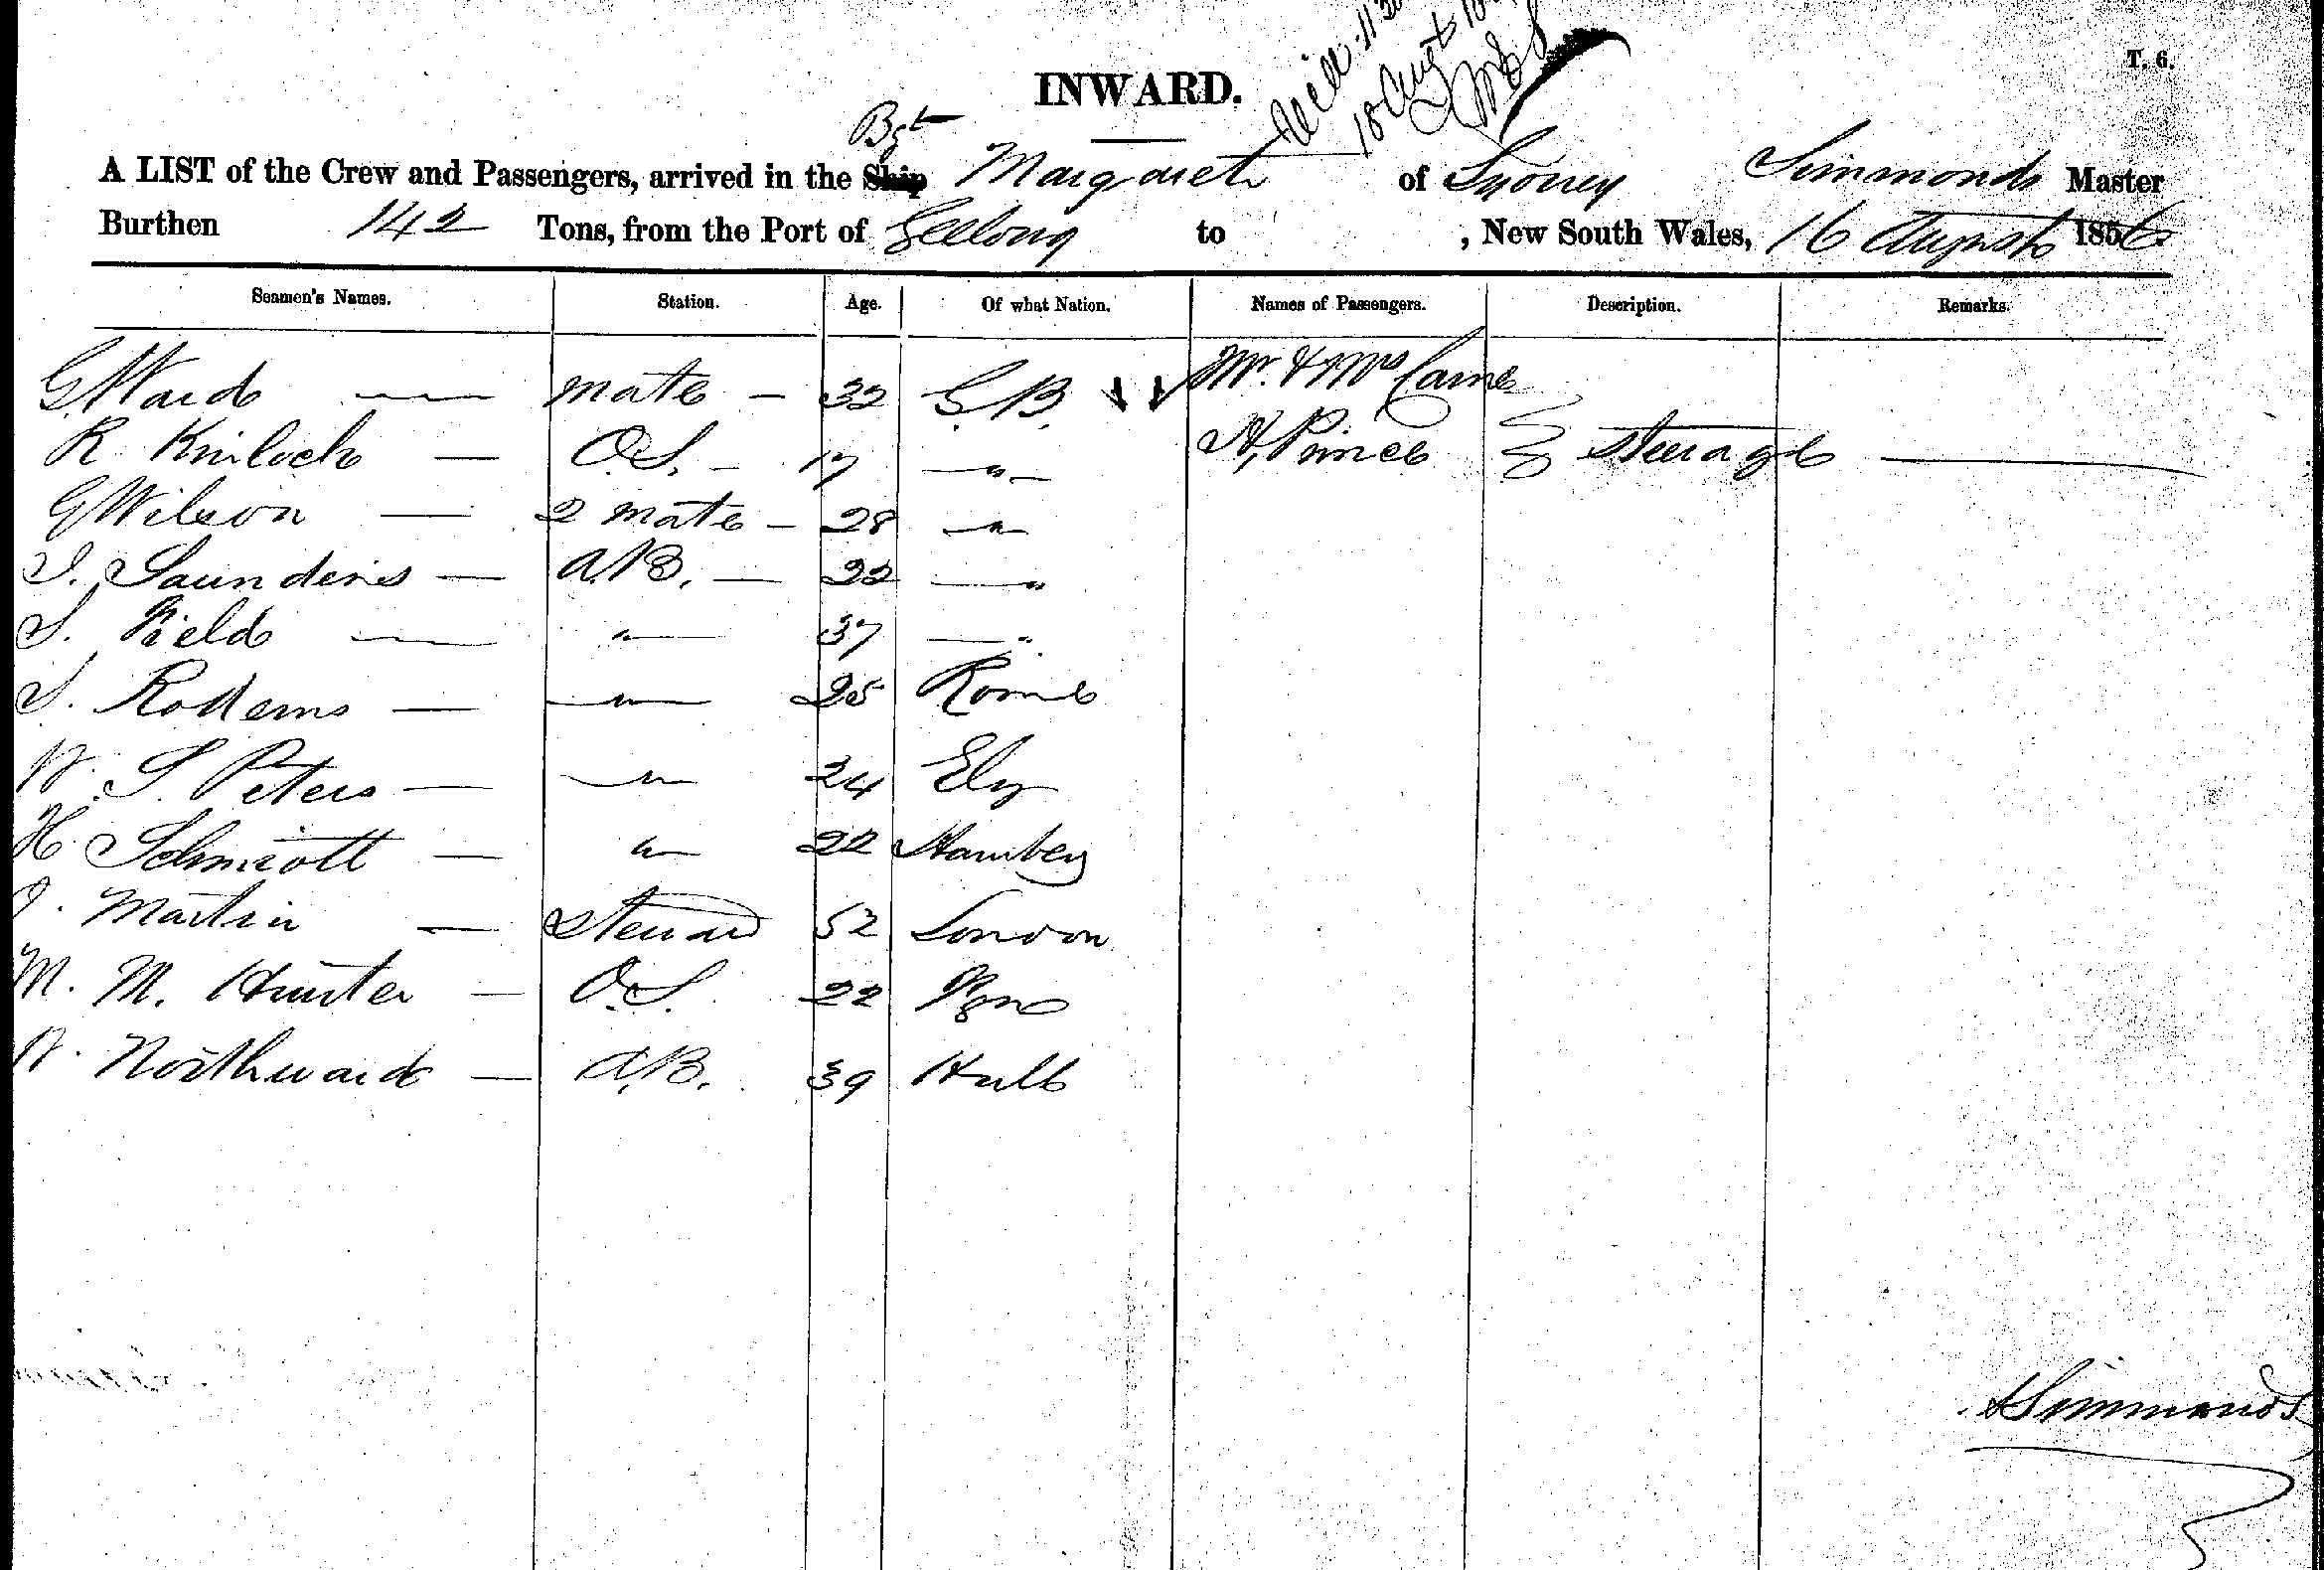 T. 6.
INWARD.
18 Augt
Bgt
A LIST of the Crew and Passengers, arrived in the Ship Margaret of Sydney Simmonds Master
Burthen 142 Tons, from the Port of Geelong to , New South Wales, 16 August 1856.
Seamen's Names. Station. Age. Of what Nation. Names of Passengers. Description. Remarks.
G Ward — mate — 32 G.B. Mr. & Mrs
R Kinloch — O.S. — 17 — " — A, Prince steerage —
G Wilson — 2 mate — 28 — " —
J. Saunders — A.B. — 22 — "
S. Field — " — 37 — "
J. — " — 25 Rome
W. S. Peters — " — 24
H Schmidtt — " — 22 Hamberg
J. Martin — Steward 52 London
M. M. Hunter — O.S. 22
W. Northward — A.B. 39 Hull
Simmonds